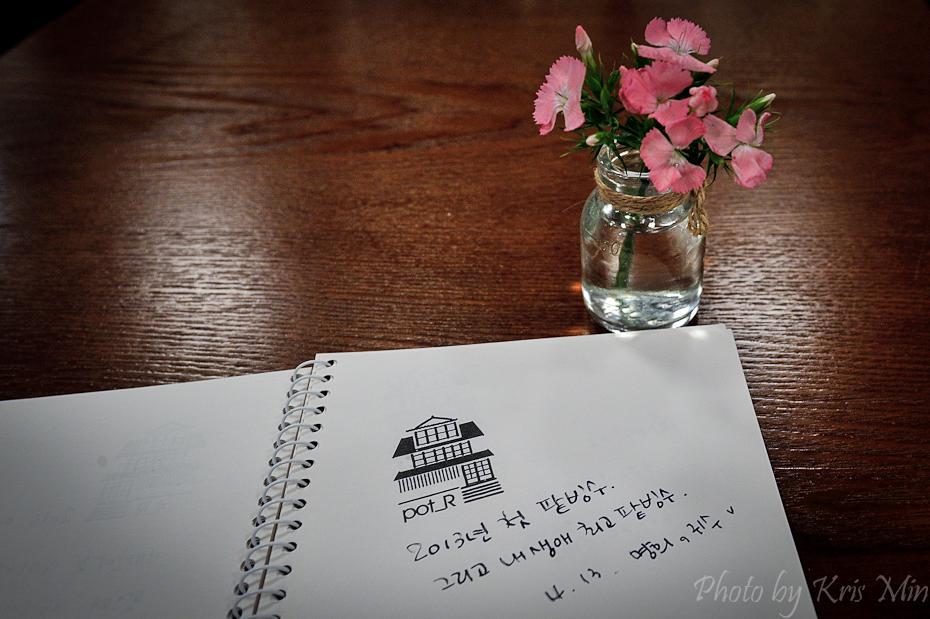 pot_R
2013년 첫 팥빙수.
그리고 내 생애 최고 팥빙수.
4. 13.
Photo by Kris Min